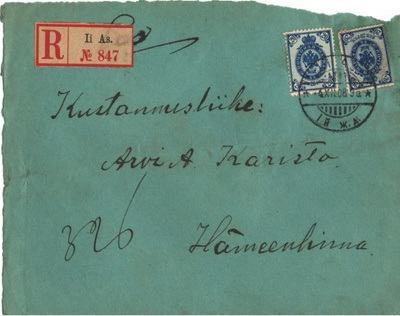 R
Ii As.
№ 847
Kustannusliike:
Arvi A. Karisto
326
Hämeenlinna.